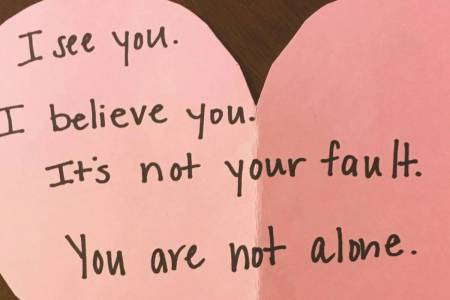 I see you.
I believe you.
It's not your fault.
You are not alone.